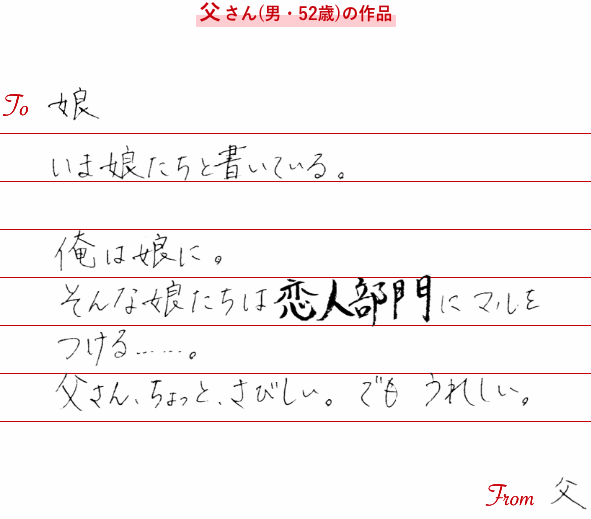 父さん(男・52歳)の作品
To 娘
いま娘たちと書いている。
俺は娘に。
そんな娘たちは恋人部門にマルを
つける……。
父さん、ちょっと、さびしい。でも うれしい。
From 父